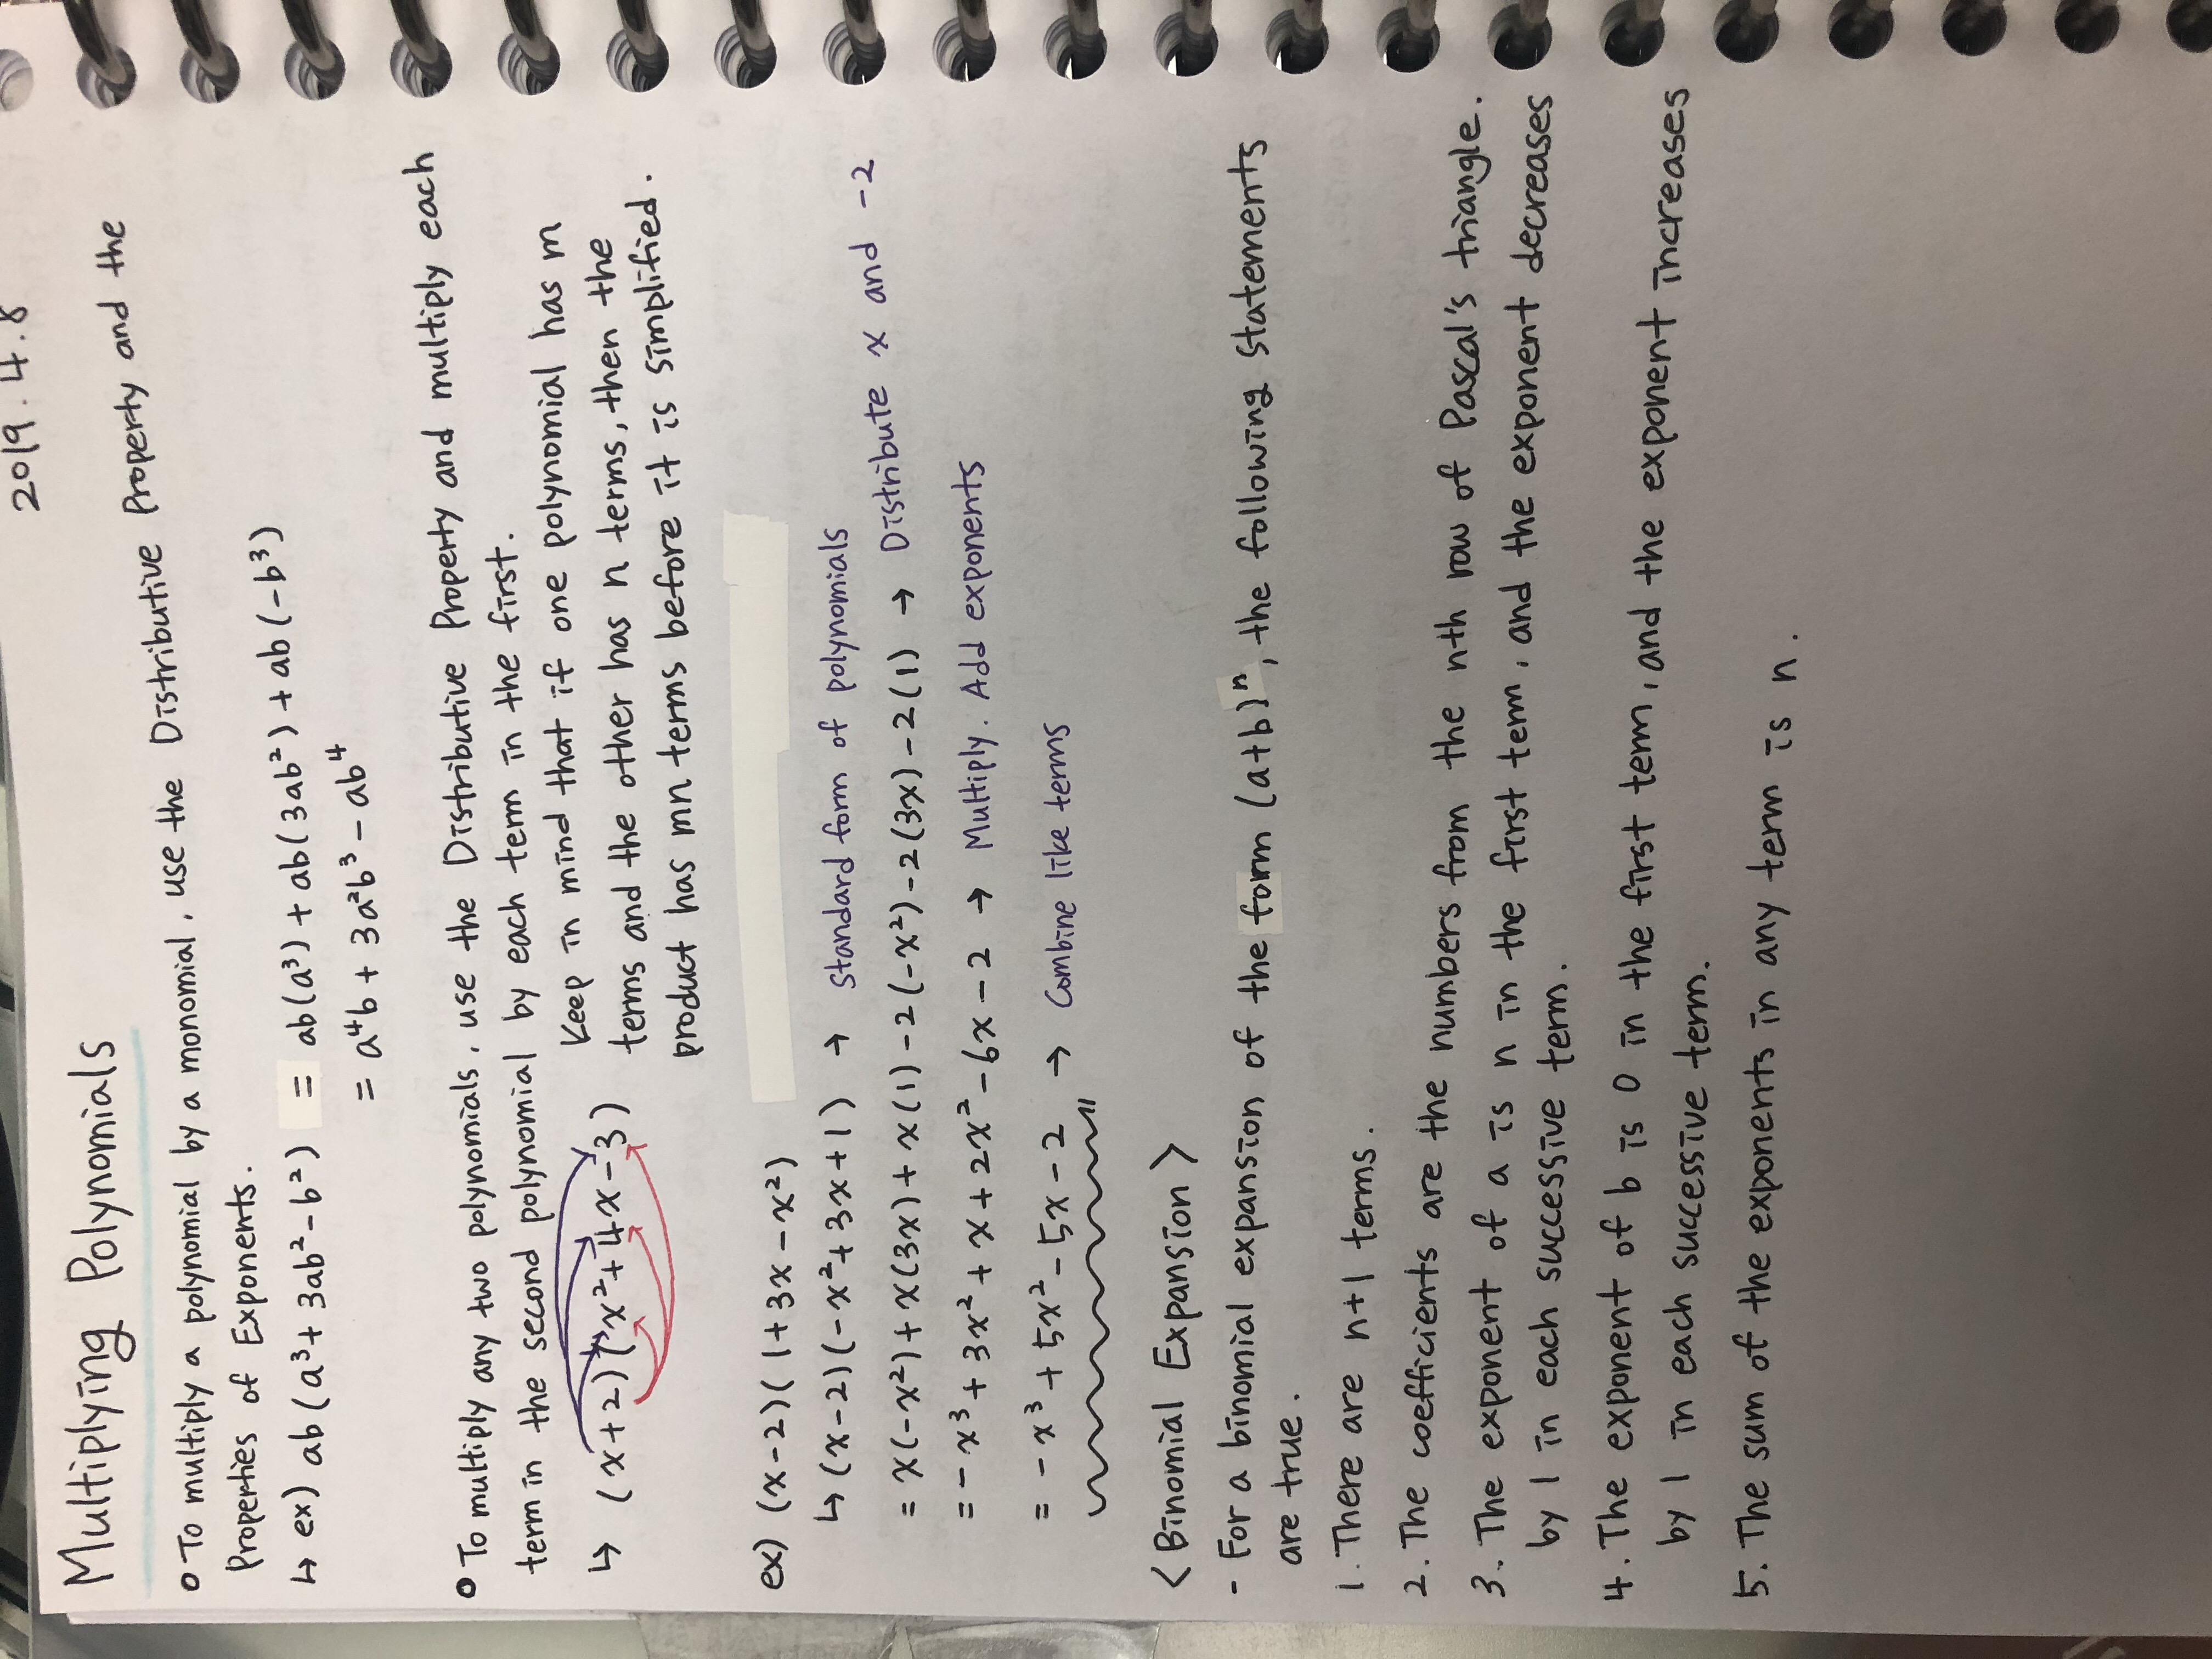 2019.4.8
Multiplying Polynomials
o To multiply a polynomial by a monomial, use the Distributive Property and the
Properties of Exponents.
↳ ex) ab(a³+3ab²-b²) = ab(a³)+ab(3ab²)+ab(-b³)
= a⁴b+3a²b³-ab⁴
o To multiply any two polynomials, use the Distributive Property and multiply each
term in the second polynomial by each term in the first.
↳ (x+2)(x²+4x-3) Keep in mind that if one polynomial has m
terms and the other has n terms, then the
product has mn terms before it is simplified.
ex) (x-2)(1+3x-x²)
↳ (x-2)(-x²+3x+1) → standard form of polynomials
= x(-x²)+x(3x)+x(1)-2(-x²)-2(3x)-2(1) → Distribute x and -2
= -x³+3x²+x+2x²-6x-2 → Multiply. Add exponents
= -x³+5x²-5x-2 → Combine like terms
<Binomial Expansion>
- For a binomial expansion of the form (a+b)ⁿ, the following statements
are true.
1. There are n+1 terms.
2. The coefficients are the numbers from the nth row of Pascal's triangle.
3. The exponent of a is n in the first term, and the exponent decreases
by 1 in each successive term.
4. The exponent of b is 0 in the first term, and the exponent increases
by 1 in each successive term.
5. The sum of the exponents in any term is n.